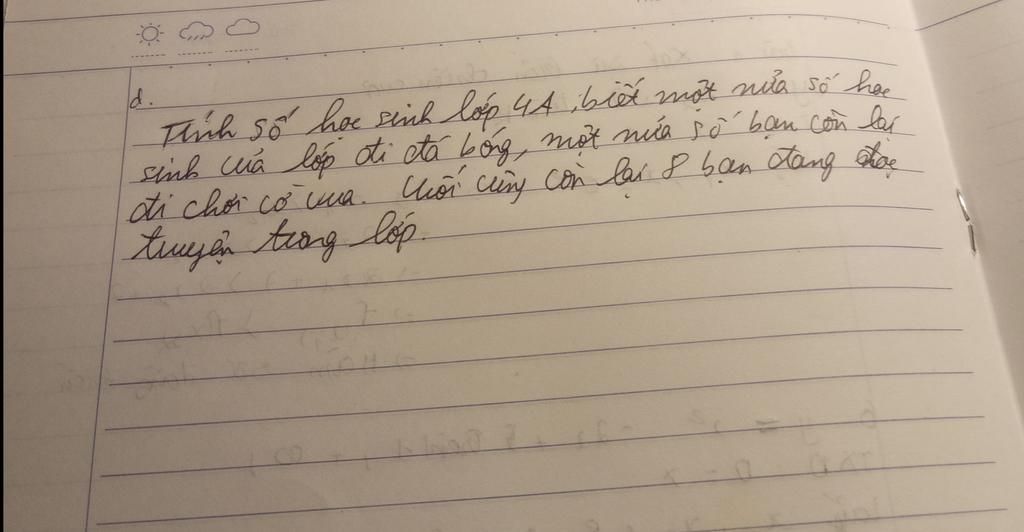 d.
Tính số học sinh lớp 4A, biết một nửa số học
sinh của lớp đi đá bóng, một nửa số bạn còn lại
đi chơi cờ vua. Cuối cùng còn lại 8 bạn đang đọc
truyện trong lớp.